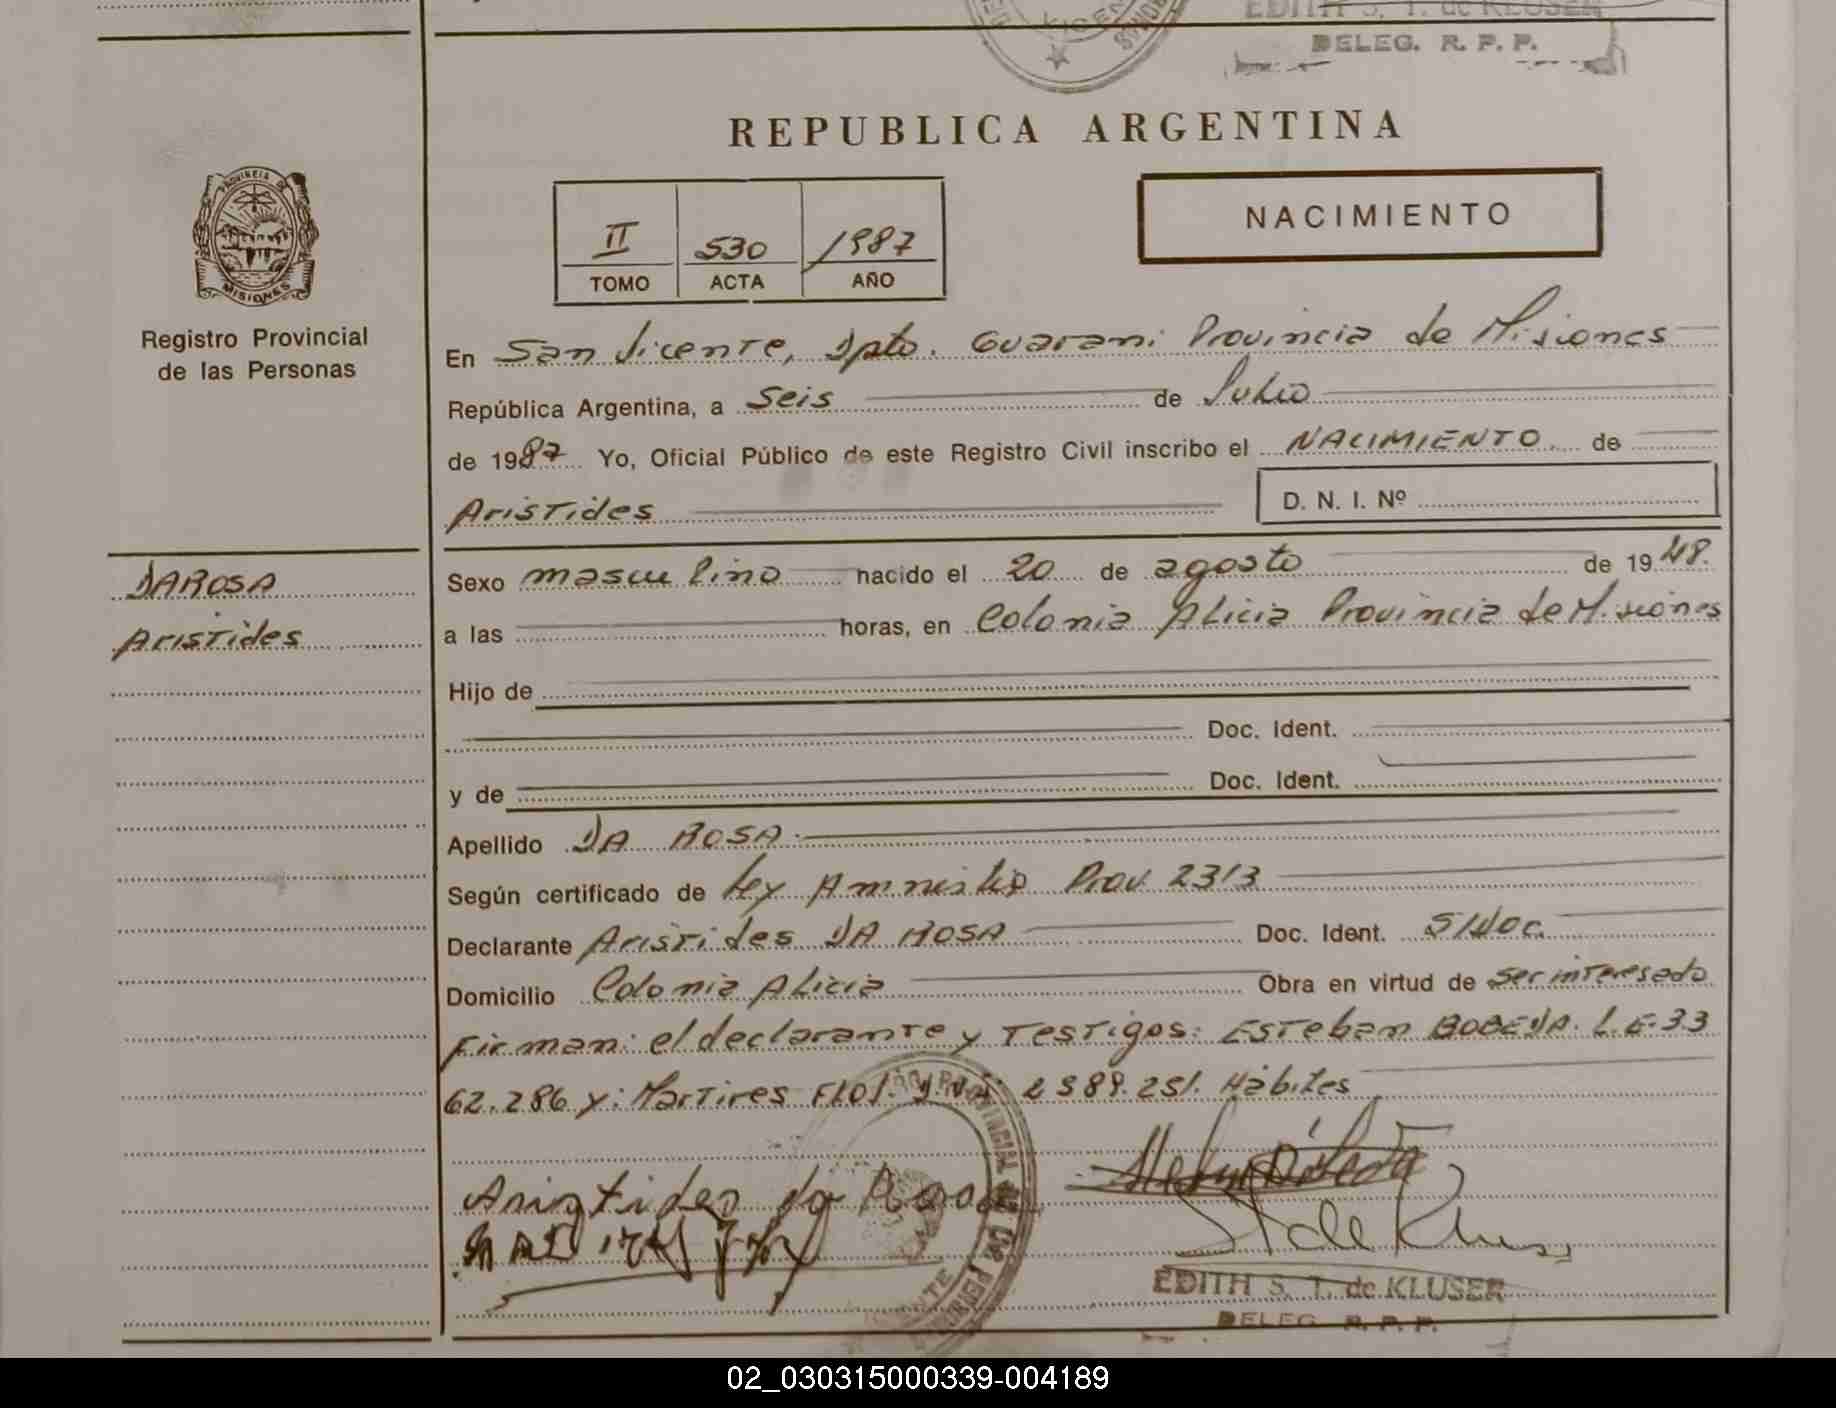 EDITH S. T. de KLUSER
DELEG. R. P. P.
REPUBLICA ARGENTINA
PROVINCIA DE
MISIONES
Registro Provincial
de las Personas
II 530 1987
TOMO ACTA AÑO
NACIMIENTO
En San Vicente, Dpto. Guarani Provincia de Misiones
República Argentina, a Seis de Julio
de 1987 Yo, Oficial Público de este Registro Civil inscribo el NACIMIENTO. de
Aristides D. N. I. Nº
DAROSA
Aristides
Sexo masculino hacido el 20 de agosto de 1948.
a las horas, en Colonia Alicia Provincia de Misiones
Hijo de
Doc. Ident.
y de Doc. Ident.
Apellido DA ROSA.
Según certificado de Ley Amnistia Prov. 2313
Declarante Aristides DA ROSA Doc. Ident. S/Doc.
Domicilio Colonia Alicia Obra en virtud de ser interesado
Firman: el declarante y Testigos: Esteban BOBEDA. L.E. 33
62.286 y: Martires 2389.251. Hábiles
Aristides da Rosa
EDITH S. T. de KLUSER
DELEG. R. P. P.
02_030315000339-004189